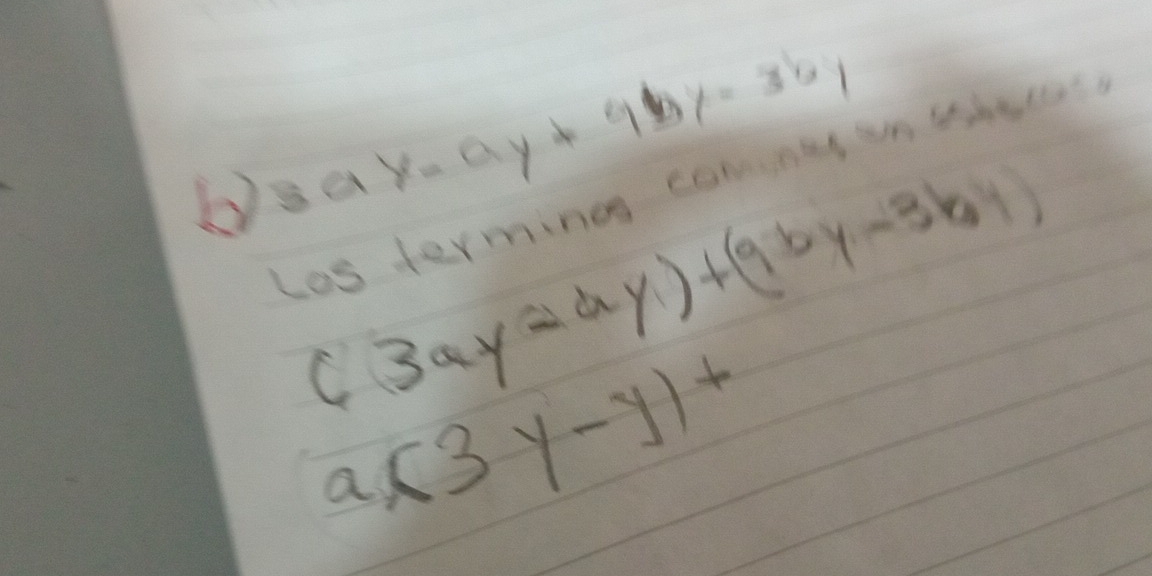 b) 3ay - ay + 9by - 3by
Los terminos comunes en
(3ay - ay) + (9by - 3by)
a(3y - y) +